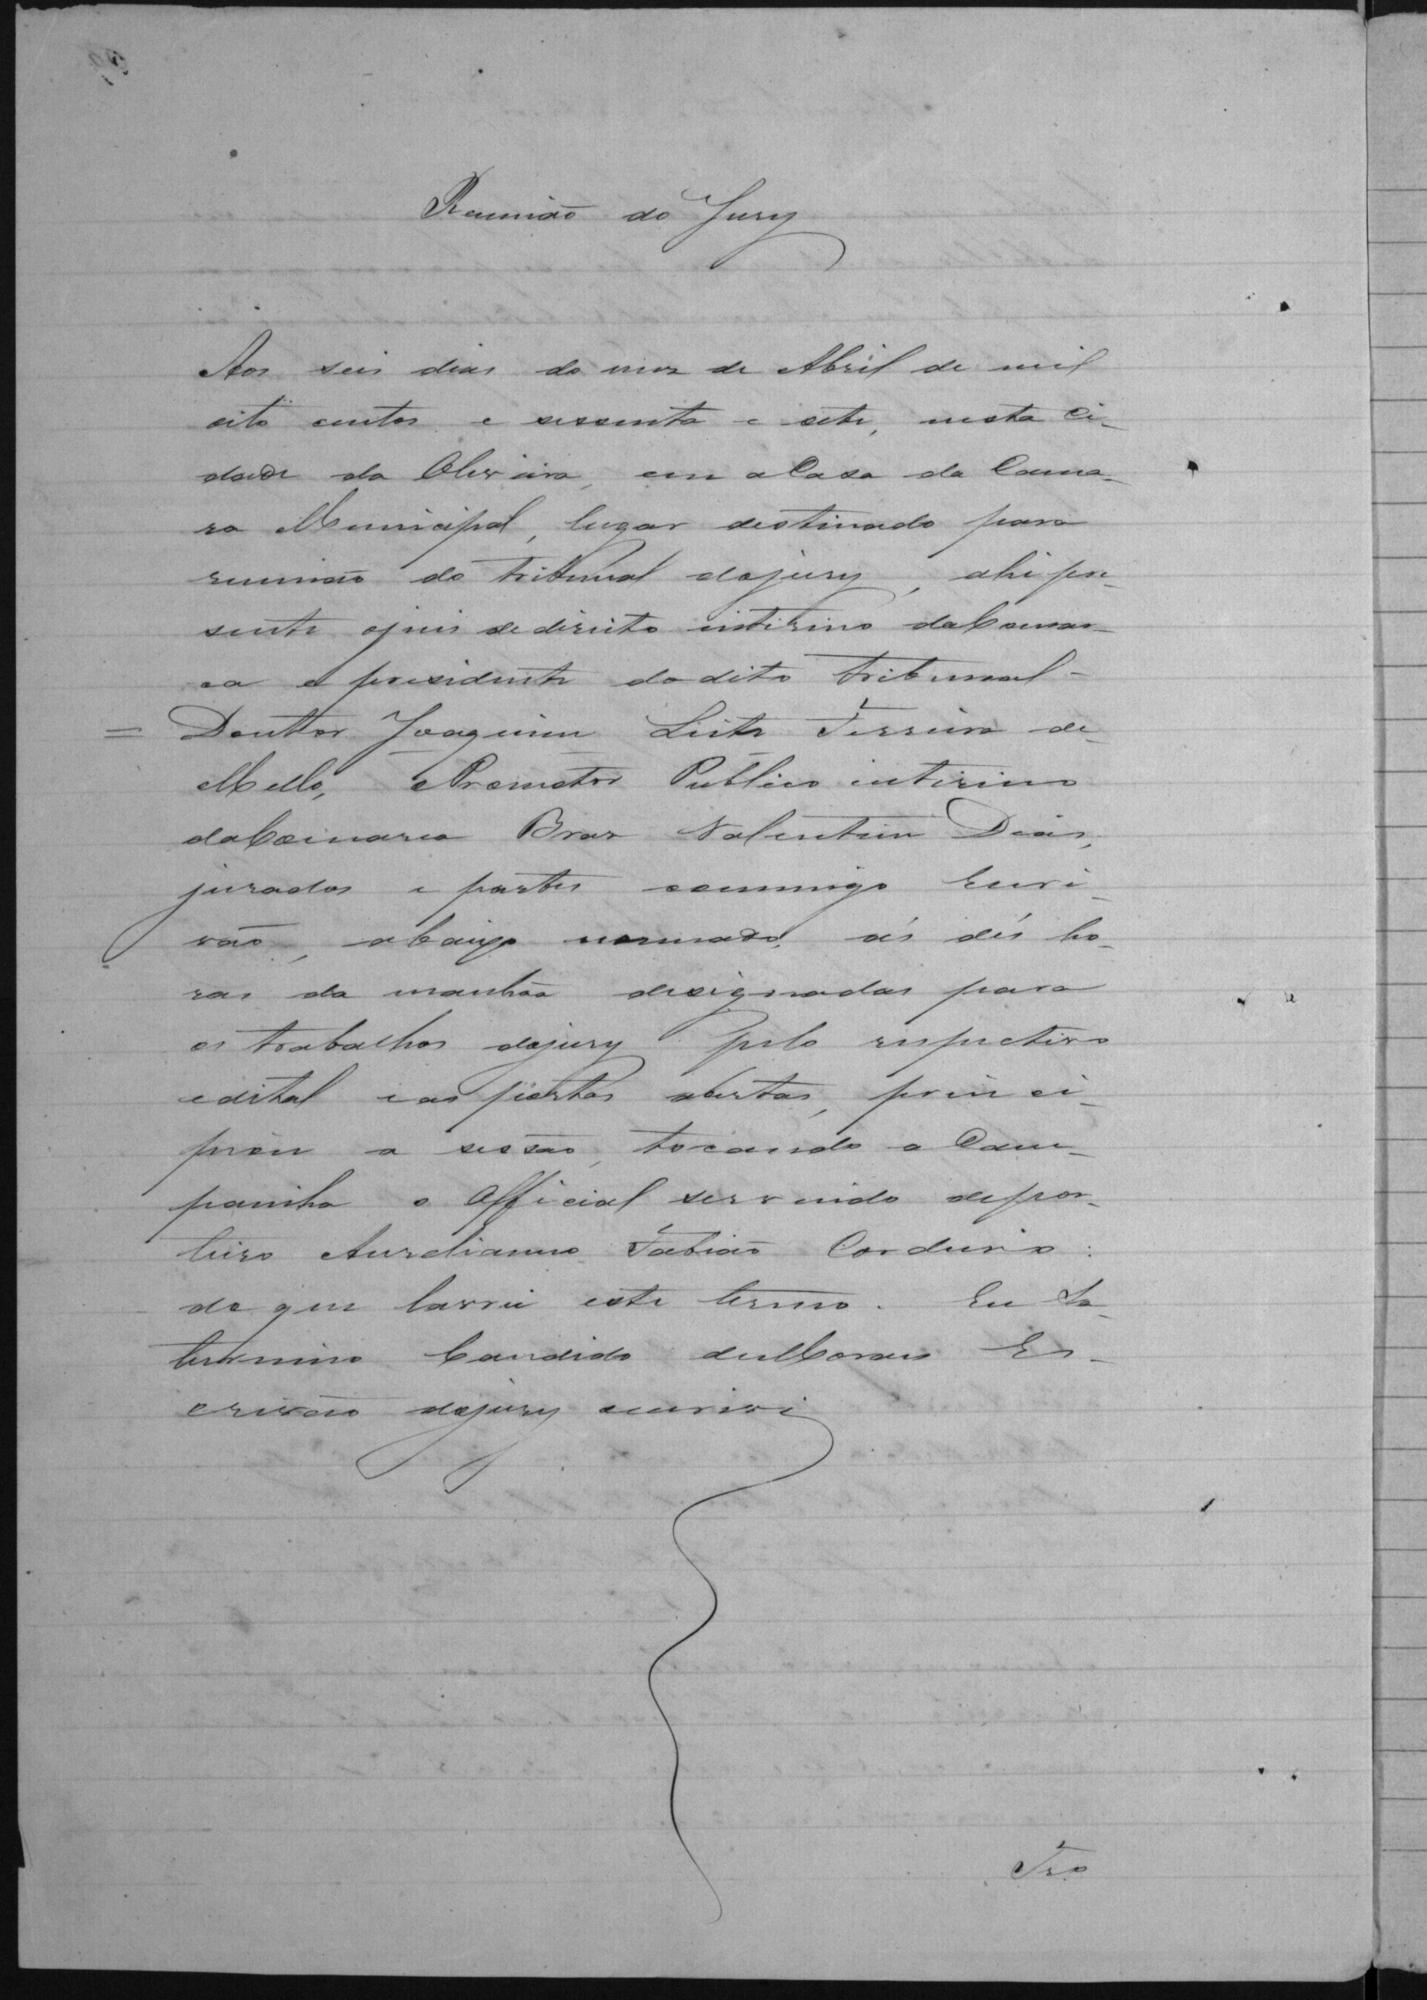 Reunião do Jury
Aos seis dias do mez de Abril de mil
oito centos e sessenta e sete, nesta Ci-
dade da Oliveira, em a Casa da Cama-
ra Municipal, lugar destinado para
reunião do tribunal dojury, ahi pre-
sente ojuis de direito interino daComar-
ca e presidente do dito tribunal -
= Doutor Joaquim Leite Ferreira de
Mello, e Promotor Publico interino
daComarca Braz Valentim Dias,
jurados e partes commigo Escri-
vão, abaixo nomeado, ás dés ho-
ras da manhãa designadas para
os trabalhos dojury pelo respectivo
edital e as portas abertas, princi-
piou a sessão, tocando a Cam-
painha o Official servindo depor-
teiro Aureliano Fabião Cordeiro:
do que lavrei este termo. Eu Sa-
turnino Candido deMoraes Es-
crivão dojury escrivi